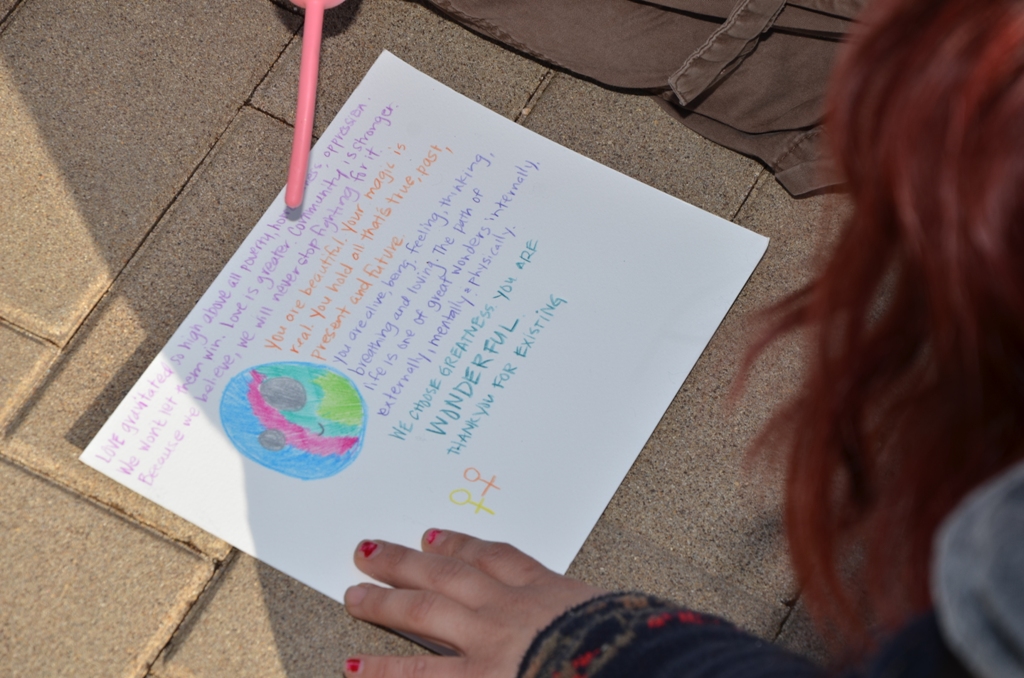 LOVE gravitates so high above all poverty, oppression.
We wont let them win. Love is greater Community is stronger.
Because we believe, we will never stop fighting for it
You are beautiful. Your magic is
real. You hold all that's true, past,
present and future
You are alive being, feeling, thinking,
breathing and loving. The path of
life is one of great wonders internally,
externally, mentally + physically.
WE CHOOSE GREATNESS YOU ARE
WONDERFUL.
THANK YOU FOR EXISTING